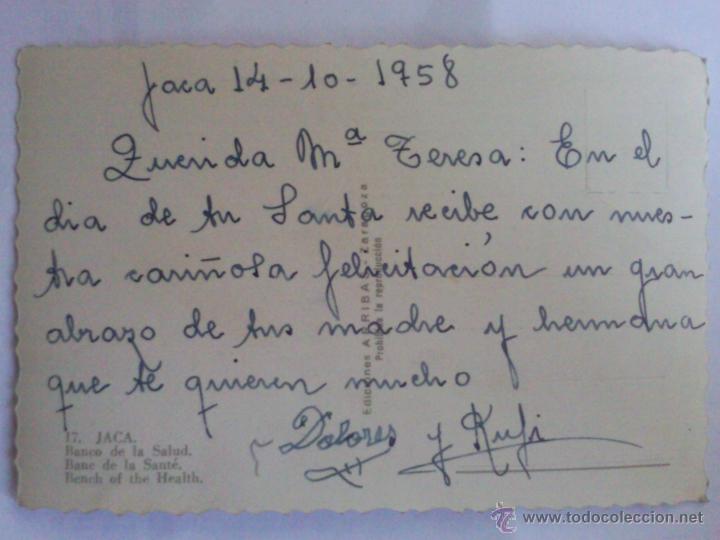 Jaca 14-10-1958
Querida Mª Teresa: En el
dia de tu Santa recibe con nues-
tra cariñosa felicitación un gran
abrazo de tus madre y hermana
que te quieren mucho
Dolores y Rufi
17. JACA.
Banco de la Salud.
Banc de la Santé.
Bench of the Health.
Ediciones ARRIBAS - Zaragoza
Prohibida la reproducción
www.todocoleccion.net